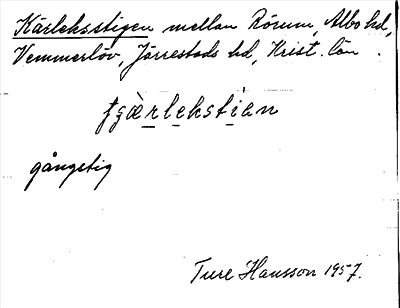 Kärleksstigen mellan Rörum, Albo hd,
Vemmerlöv, Järrestads hd, Krist. län.
gångstig
Ture Hansson 1957.